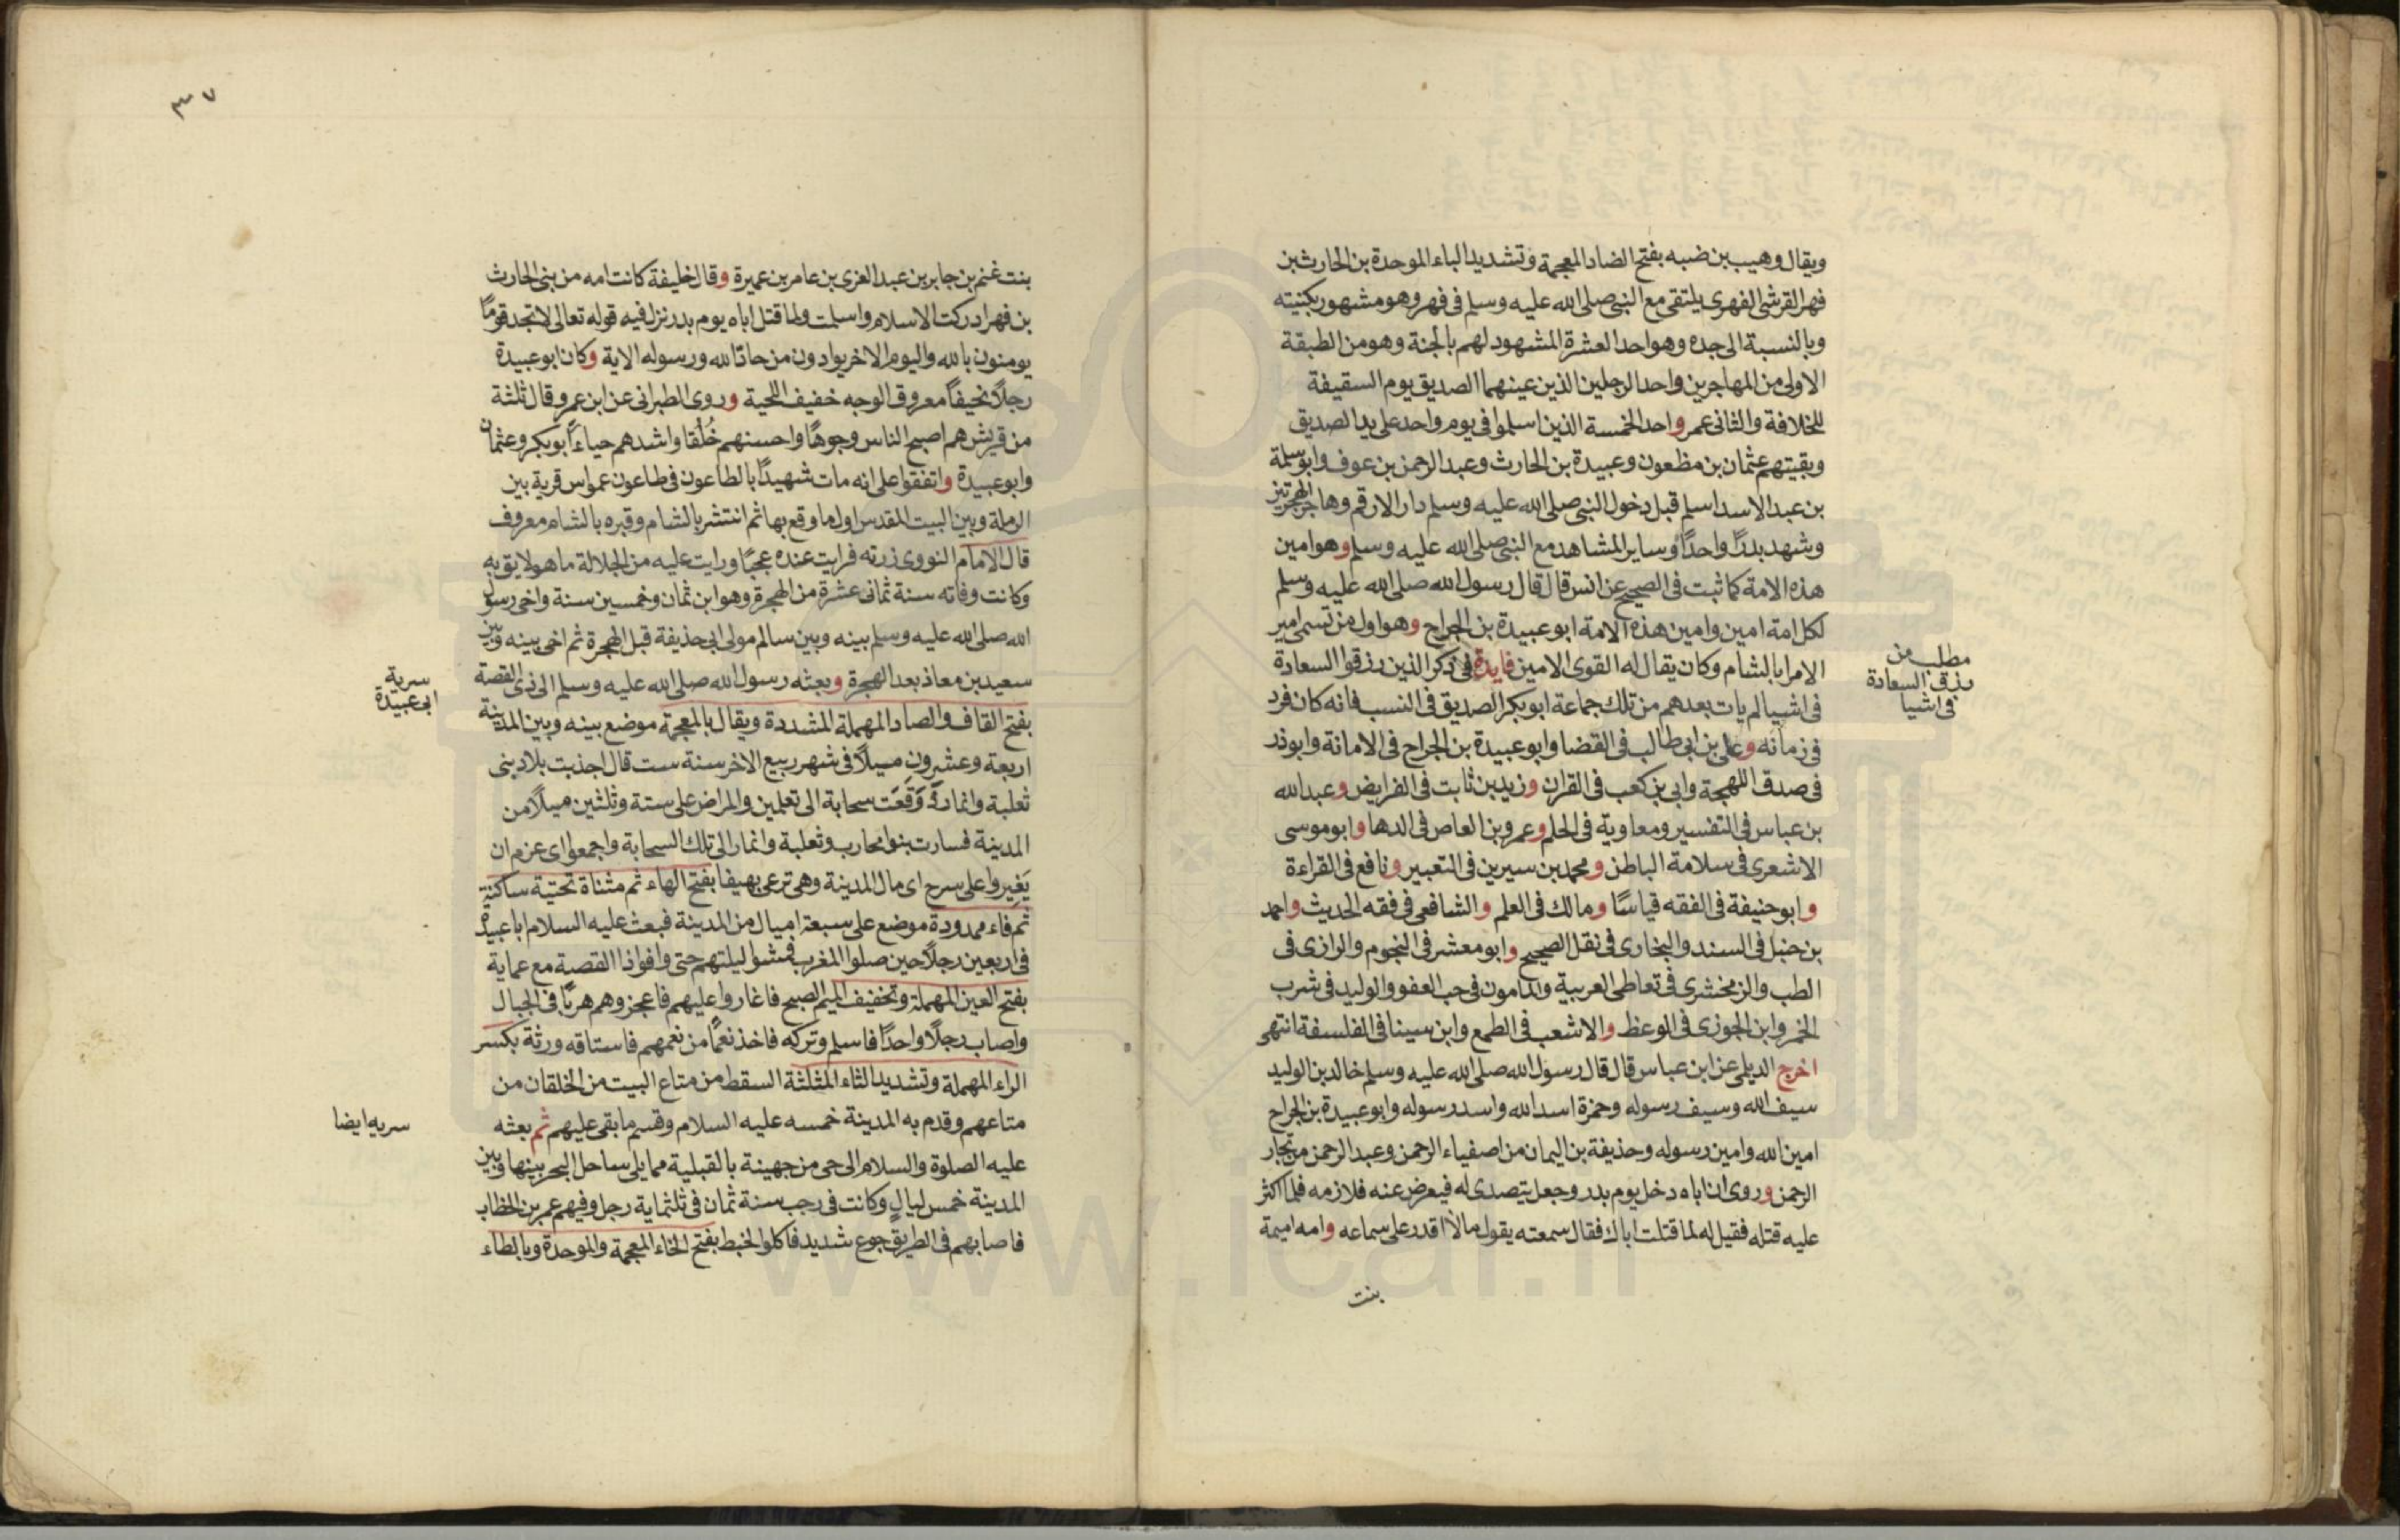 ويقال وهيب بن ضبه بفتح الضاد المعجمة وتشديد الباء الموحدة بن الحارث بن
فهر القرشى الفهرى يلتقى مع النبى صلى الله عليه وسلم فى فهر وهو مشهور بكنيته
وبالنسبة الى جده وهو احد العشرة المشهود لهم بالجنة وهو من الطبقة
الاولى من المهاجرين واحد الرجلين الذين عينهما الصديق يوم السقيفة
للخلافة والثانى عمر واحد الخمسة الذين اسلموا فى يوم واحد على يد الصديق
وبقيتهم عثمان بن مظعون وعبيدة بن الحارث وعبد الرحمن بن عوف وابو سلمة
بن عبد الاسد اسلم قبل دخول النبى صلى الله عليه وسلم دار الارقم وهاجر الهجرتين
وشهد بدرًا واحدًا وساير المشاهد مع النبى صلى الله عليه وسلم وهو امين
هذه الامة كما ثبت فى الصحيح عن انس قال قال رسول الله صلى الله عليه وسلم
لكل امة امين وامين هذه الامة ابو عبيدة بن الجراح وهو اول من تسمى امير
الامرا بالشام وكان يقال له القوى الامين فايدة فى ذكر الذين رزقوا السعادة
مطلب من
رزق السعادة
فى اشيا
فى اشيا لم يات بعدهم من تلك جماعة ابو بكر الصديق فى النسب فانه كان فرد
فى زمانه وعلى بن ابى طالب فى القضا وابو عبيدة بن الجراح فى الامانة وابو ذر
فى صدق اللهجة وابى بن كعب فى القران وزيد بن ثابت فى الفرايض وعبد الله
بن عباس فى التفسير ومعاوية فى الحلم وعمرو بن العاص فى الدها وابو موسى
الاشعرى فى سلامة الباطن ومحمد بن سيرين فى التعبير ونافع فى القراءة
وابو حنيفة فى الفقه قياسًا ومالك فى العلم والشافعى فى فقه الحديث واحمد
بن حنبل فى السند والبخارى فى نقل الصحيح وابو معشر فى النجوم والرازى فى
الطب والزمخشرى فى تعاطى العربية والمامون فى حب العفو والوليد فى شرب
الخمر وابن الجوزى فى الوعظ والاشعب فى الطمع وابن سينا فى الفلسفة انتهى
اخرج الديلى عن ابن عباس قال قال رسول الله صلى الله عليه وسلم خالد بن الوليد
سيف الله وسيف رسوله وحمزة اسد الله واسد رسوله وابو عبيدة بن الجراح
امين الله وامين رسوله وحذيفة بن اليمان من اصفياء الرحمن وعبد الرحمن من تجار
الرحمن وروى ان اباه دخل يوم بدر وجعل يتصدى له فيعرض عنه فلازمه فلما اكثر
عليه قتله فقيل له لما قتلت اباك فقال سمعته يقول ما لا اقدر على سماعه وامه اميمة
بنت
٣٧
بنت غنم بن جابر بن عبد العزى بن عامر بن عميرة وقال خليفة كانت امه من بنى الحارث
بن فهر ادركت الاسلام واسلمت ولما قتل اباه يوم بدر نزل فيه قوله تعالى لا تجد قومًا
يومنون بالله واليوم الاخر يوادون من حاد الله ورسوله الاية وكان ابو عبيدة
رجلاً نحيفاً معروق الوجه خفيف اللحية وروى الطبرانى عن ابن عمرو قال ثلثة
من قريش هم اصبح الناس وجوهًا واحسنهم خُلُقا واشدهم حياءً ابو بكر وعثمان
وابو عبيدة واتفقوا على انه مات شهيدًا بالطاعون فى طاعون عمواس قرية بين
الرملة وبين البيت المقدس اول ما وقع بها ثم انتشر بالشام وقبره بالشام معروف
قال الامام النووى زرته فرايت عنده عجبًا ورايت عليه من الجلالة ما هو لايق به
وكانت وفاته سنة ثمانى عشرة من الهجرة وهو ابن ثمان وخمسين سنة واخى رسول
الله صلى الله عليه وسلم بينه وبين سالم مولى ابى حذيفة قبل الهجرة ثم اخى بينه وبين
سعيد بن معاذ بعد الهجرة وبعثه رسول الله صلى الله عليه وسلم الى ذى القصة
سرية
ابى عبيدة
بفتح القاف والصاد المهملة المشددة ويقال بالمعجمة موضع بينه وبين المدينة
اربعة وعشرون ميلاً فى شهر ربيع الاخر سنة ست قال اجذبت بلاد بنى
ثعلبة وانمار وَوَقَعَت سحابة الى تعلمين والمراض على ستة وثلثين ميلاً من
المدينة فسارت بنو محارب وثعلبة وانمار الى تلك السحابة واجمعوا اى عزم ان
يَغيروا على سرح اى مال المدينة وهى ترعى بهيفا بفتح الهاء ثم مثناة تحتية ساكنة
ثم فاء ممدودة موضع على سبعة اميال من المدينة فبعث عليه السلام ابا عبيدة
فى اربعين رجلاً حين صلوا المغرب فمشوا ليلتهم حتى وافوا ذا القصة مع عماية
بفتح العين المهملة وتخفيف الميم الصبح فاغاروا عليهم فاعجزوهم هربًا فى الجبال
واصاب رجلاً واحدًا فاسلم وتركه فاخذ نعمًا من نعمهم فاستاقه ورثة بكسر
الراء المهملة وتشديد الثاء المثلثة السقط من متاع البيت من الخلقان من
متاعهم وقدم به المدينة خمسه عليه السلام وقسم ما بقى عليهم ثم بعثه
سريه ايضا
عليه الصلوة والسلام الى حى من جهينة بالقبلية مما يلى ساحل البحر بينها وبين
المدينة خمس ليالٍ وكانت فى رجب سنة ثمان فى ثلثماية رجل وفيهم عمر بن الخطاب
فاصابهم فى الطريق جوع شديد فاكلوا الخبط بفتح الخاء المعجمة والموحدة وبالطاء
www.ical.ir